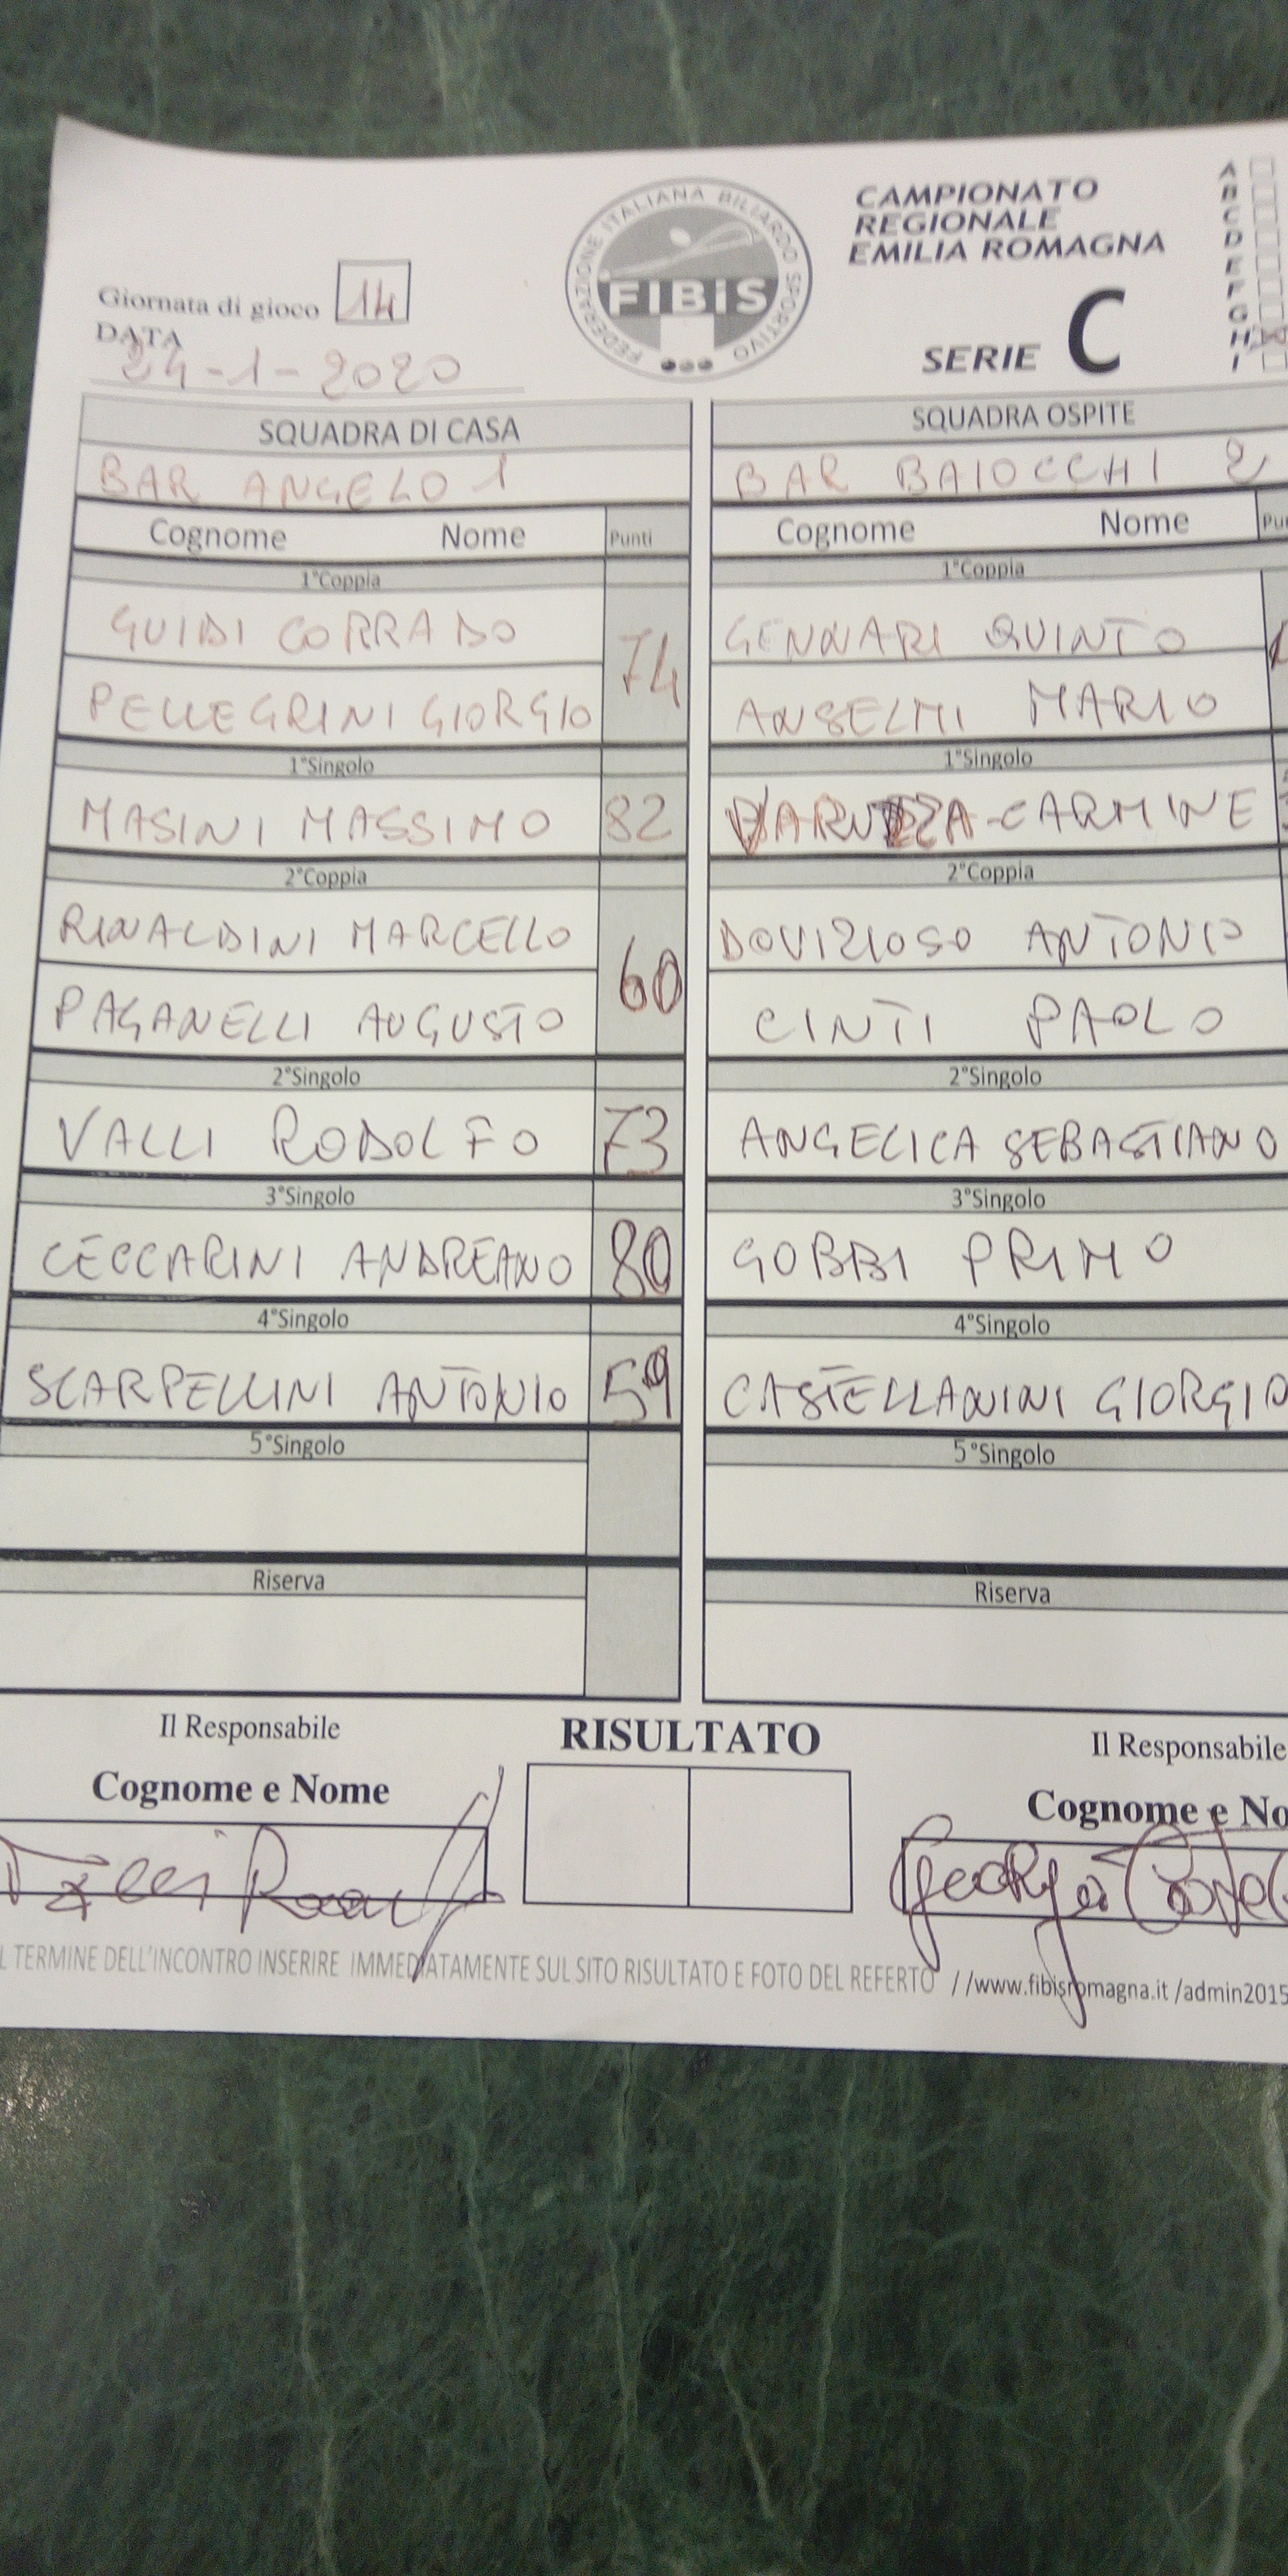 FEDERAZIONE ITALIANA BILIARDO SPORTIVO
FIBiS
CAMPIONATO
REGIONALE
EMILIA ROMAGNA
SERIE C
A
B
C
D
E
F
G
H
I
Giornata di gioco 14
DATA
24-1-2020
SQUADRA DI CASA
BAR ANGELO 1
Cognome Nome Punti
1°Coppia
GUIDI CORRADO
74
PELLEGRINI GIORGIO
1°Singolo
MASINI MASSIMO 82
2°Coppia
RINALDINI MARCELLO
60
PAGANELLI AUGUSTO
2°Singolo
VALLI RODOLFO 73
3°Singolo
CECCARINI ANDREANO 80
4°Singolo
SCARPELLINI ANTONIO 59
5°Singolo
Riserva
SQUADRA OSPITE
BAR BAIOCCHI 2
Cognome Nome
1°Coppia
GENNARI QUINTO
ANSELMI MARIO
1°Singolo
CARMINE
2°Coppia
DOVIZIOSO ANTONIO
CINTI PAOLO
2°Singolo
ANGELICA SEBASTIANO
3°Singolo
GOBBI PRIMO
4°Singolo
CASTELLANINI GIORGIO
5°Singolo
Riserva
Il Responsabile
Cognome e Nome
RISULTATO
Il Responsabile
Cognome e No
L TERMINE DELL'INCONTRO INSERIRE IMMEDIATAMENTE SUL SITO RISULTATO E FOTO DEL REFERTO //www.fibisromagna.it /admin2015